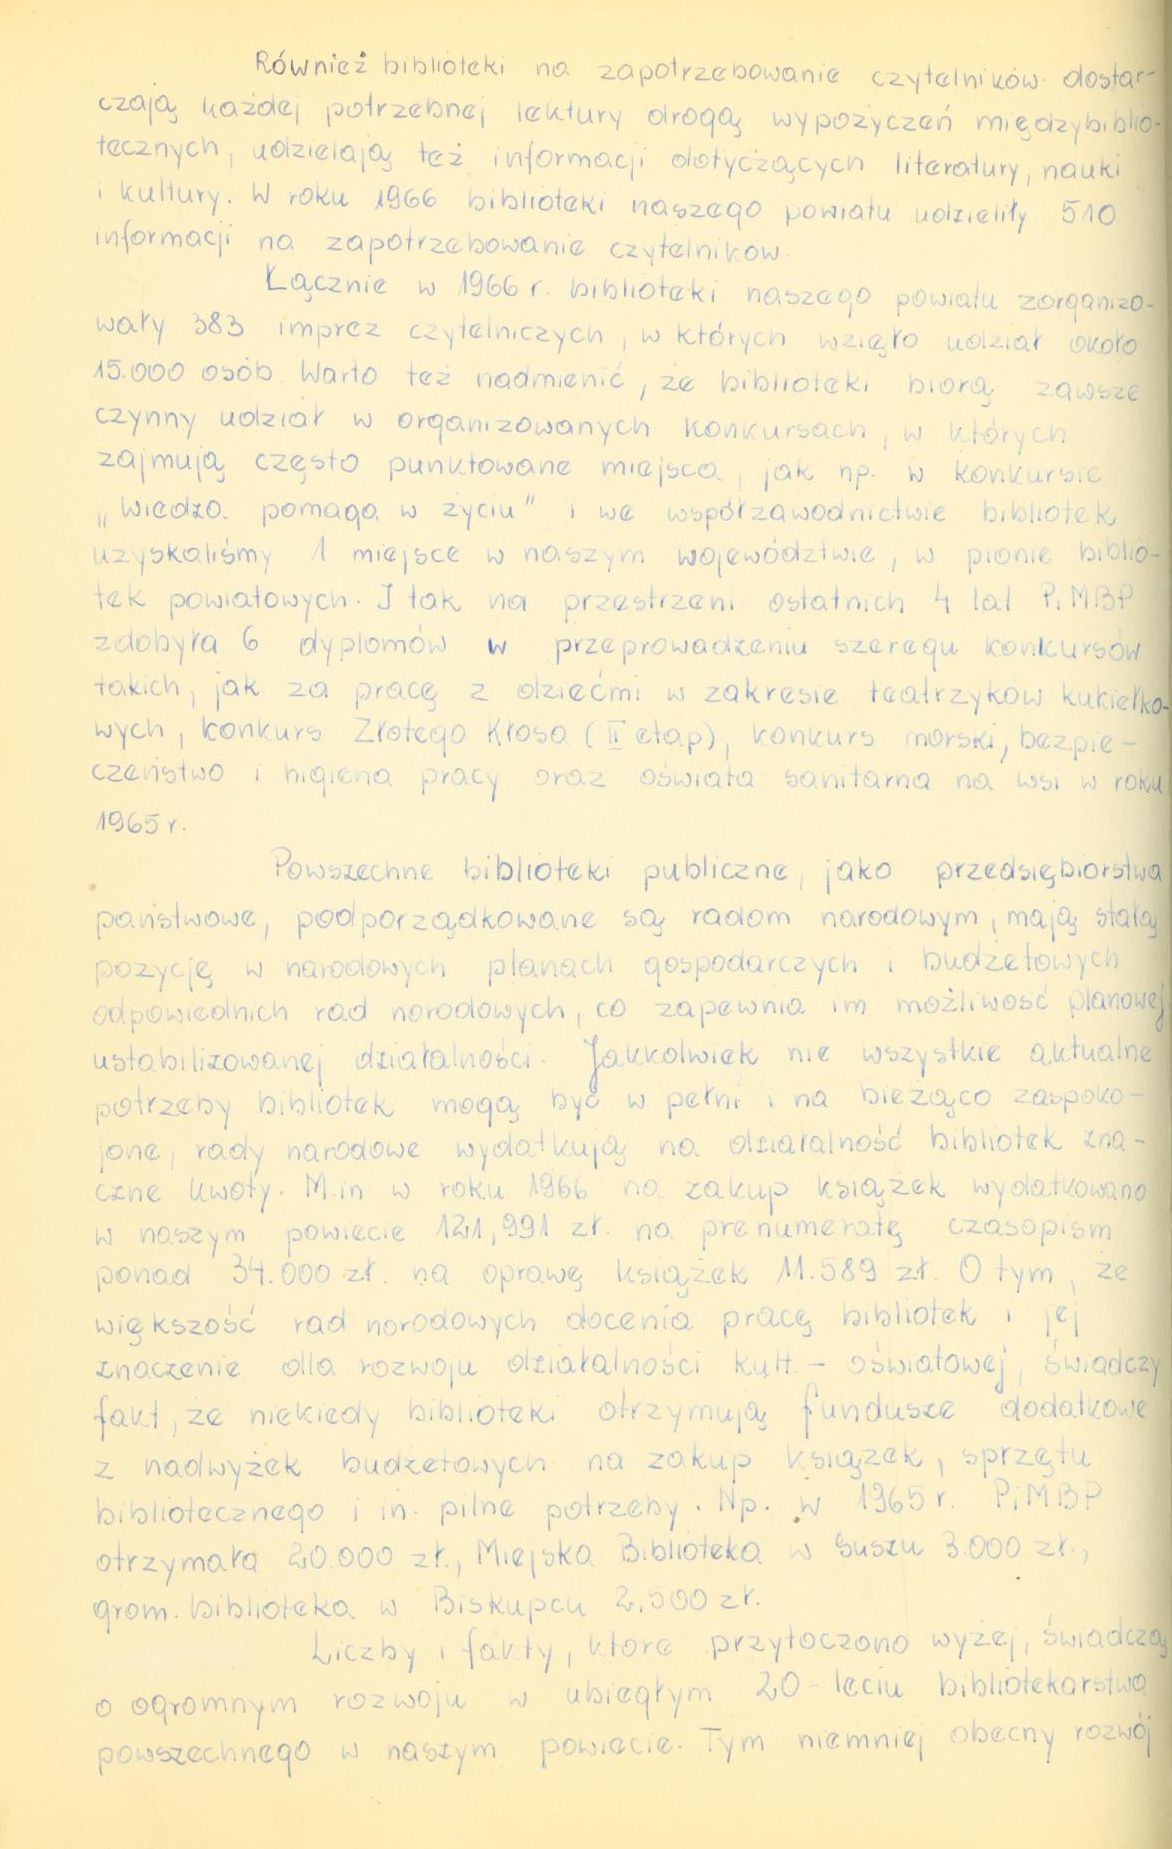 Również biblioteki na zapotrzebowanie czytelników dostar-
czają każdej potrzebnej lektury drogą wypożyczeń międzybiblio-
tecznych, udzielają też informacji dotyczących literatury, nauki
i kultury. W roku 1966 biblioteki naszego powiatu udzieliły 510
informacji na zapotrzebowanie czytelników.
Łącznie w 1966 r. biblioteki naszego powiatu zorganizo-
wały 383 imprez czytelniczych, w których wzięło udział około
15.000 osób. Warto też nadmienić, że biblioteki biorą zawsze
czynny udział w organizowanych konkursach, w których
zajmują często punktowane miejsca, jak np. w konkursie
„Wiedza pomaga w życiu" i we współzawodnictwie bibliotek
uzyskaliśmy 1 miejsce w naszym województwie, w pionie biblio-
tek powiatowych. I tak na przestrzeni ostatnich 4 lat PiMBP
zdobyła 6 dyplomów w przeprowadzeniu szeregu konkursów
takich, jak za pracę z dziećmi w zakresie teatrzyków kukiełko-
wych, konkurs Złotego Kłosa (II etap), konkurs morski, bezpie-
czeństwo i higiena pracy oraz oświata sanitarna na wsi w roku
1965 r.
Powszechne biblioteki publiczne, jako przedsiębiorstwa
państwowe, podporządkowane są radom narodowym, mają stałą
pozycję w narodowych planach gospodarczych i budżetowych
odpowiednich rad narodowych, co zapewnia im możliwość planowej
ustabilizowanej działalności. Jakkolwiek nie wszystkie aktualne
potrzeby bibliotek mogą być w pełni i na bieżąco zaspoko-
jone, rady narodowe wydatkują na działalność bibliotek zna-
czne kwoty. M.in w roku 1966 na zakup książek wydatkowano
w naszym powiecie 121,991 zł. na prenumeratę czasopism
ponad 34.000 zł. na oprawę książek 11.589 zł. O tym, że
większość rad narodowych docenia pracę bibliotek i jej
znaczenie dla rozwoju działalności kult. - oświatowej, świadczy
fakt, że niekiedy biblioteki otrzymują fundusze dodatkowe
z nadwyżek budżetowych na zakup książek, sprzętu
bibliotecznego i in. pilne potrzeby. Np. w 1965 r. PiMBP
otrzymała 20.000 zł., Miejska Biblioteka w Suszu 3.000 zł.,
grom. biblioteka w Biskupcu 2.500 zł.
Liczby i fakty, które przytoczono wyżej, świadczą
o ogromnym rozwoju w ubiegłym 20-leciu bibliotekarstwa
powszechnego w naszym powiecie. Tym niemniej obecny rozwój